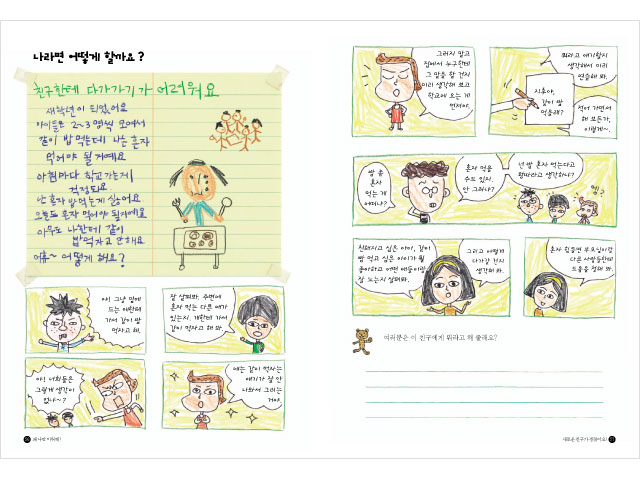 나라면 어떻게 할까요?
친구한테 다가가기가 어려워요
새학년이 되었어요
아이들은 2~3명씩 모여서
같이 밥 먹는데 나는 혼자
먹어야 될 거예요
아침마다 학교가는게
걱정되요
난 혼자 밥먹는게 싫어요
오늘도 혼자 먹어야 될거예요
아무도 나한테 같이
밥먹자고 안해요
어휴~ 어떻게 해요?
야! 그냥 옆에
드는 아한테
가서 같이 밥
먹자고 해.
잘 살펴봐. 주변에
혼자 먹는 다른 애가
있는지. 걔한테 가서
같이 먹자고 해 봐.
야! 너희들은
그렇게 생각이
없냐~?
얘는 같이 먹자는
얘기가 잘 안
나와서 그러는
거야.
그러지 말고
집에서 누구한테
그 말을 할 건지
미리 생각해 보고
학교에 오는 게
먼저야.
뭐라고 얘기할지
생각해서 미리
연습해 봐.
지후야,
같이 밥
먹을래?
적어 가면서
해 보든가,
이렇게~.
밥 좀
혼자
먹는 게
어때서?
혼자 먹을
수도 있지.
안 그러냐?
넌 밥 혼자 먹는다고
왕따라고 생각하냐?
엥?
친해지고 싶은 아이, 같이
밥 먹고 싶은 아이가 뭘
좋아하고 어떤 애들이랑
잘 노는지 살펴봐.
그리고 어떻게
다가갈 건지
생각해 봐.
혼자 힘들면 부모님이랑
다른 사람들한테
도움을 청해 봐.
여러분은 이 친구에게 뭐라고 해 줄래요?
새로운 친구가 생겼어요!